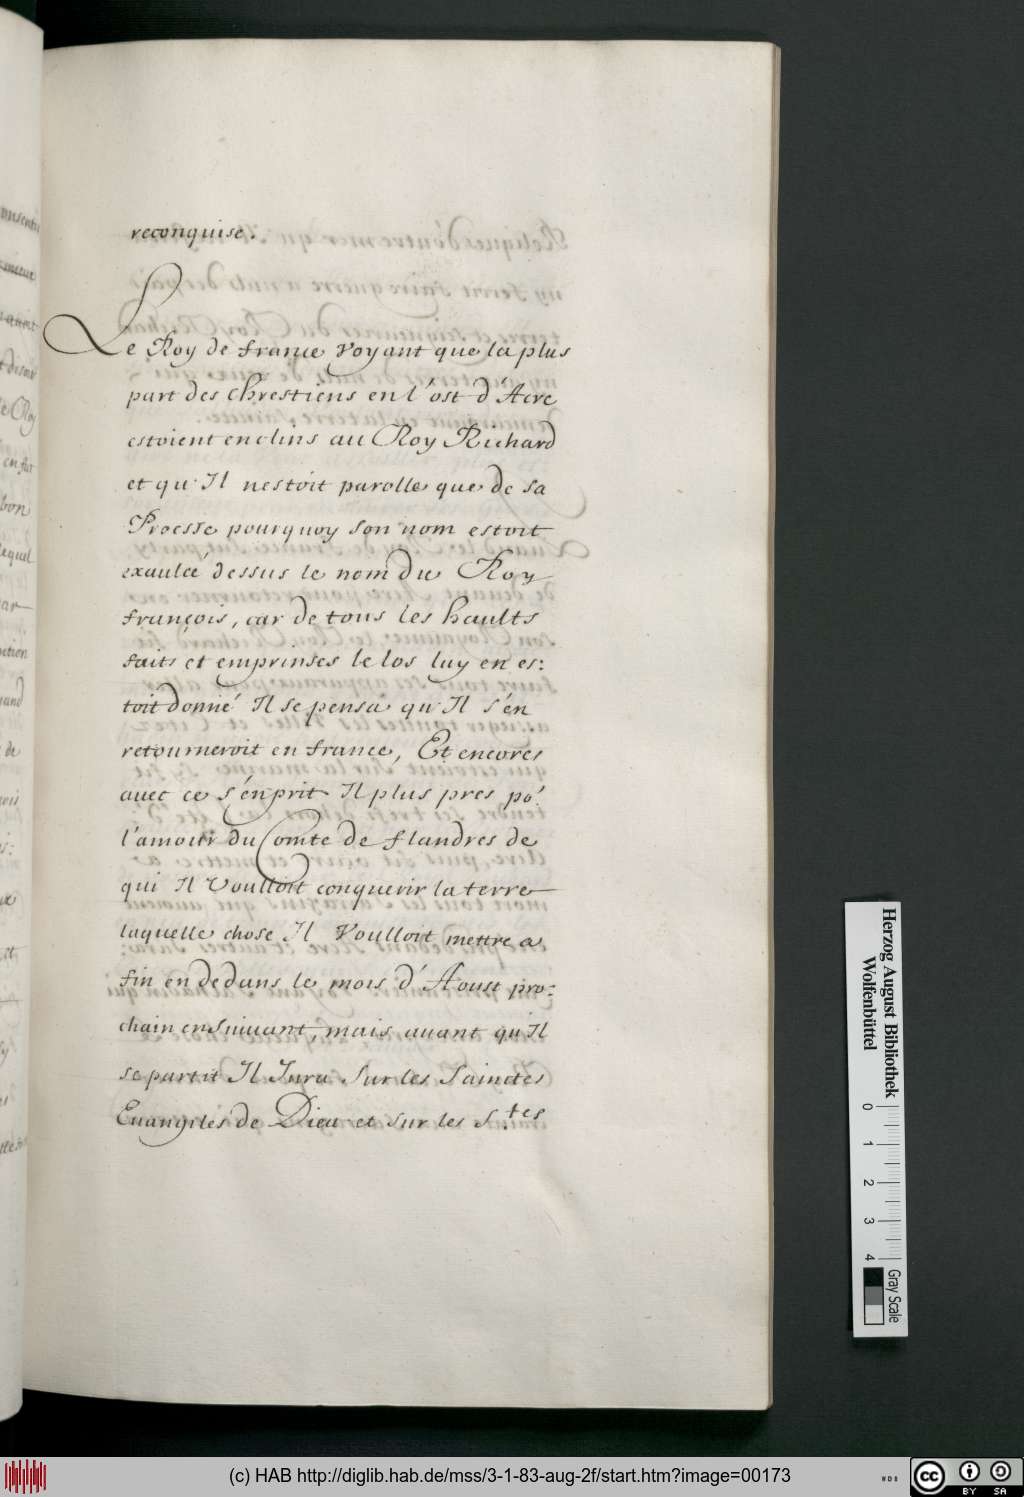 reconquise.
Le Roy de france voyant que la plus
part des Chrestiens en l'ost d'Acre
estoient enclins au Roy Richard
et qu'Il nestoit parolle que de sa
Proesse pourquoy son nom estoit
exaulcé dessus le nom du Roy
françois, car de tous les haults
faits et emprinses le los luy en es:
toit donné Il se pensa qu'Il s'en
retourneroit en france, Et encores
avec ce s'enprit Il plus pres po.^r
l'amour du Comte de flandres de
qui Il voulloit conquerir la terre
laquelle chose Il voulloit mettre a
fin en dedans le mois d'Aoust pro:
chain ensuiuant, mais auant qu'Il
se partit Il Jura sur les sainctes
Euangiles de Dieu et sur les s.^tes
Herzog August Bibliothek
Wolfenbüttel
0 1 2 3 4
Gray Scale
(c) HAB http://diglib.hab.de/mss/3-1-83-aug-2f/start.htm?image=00173
WDB
CC BY SA